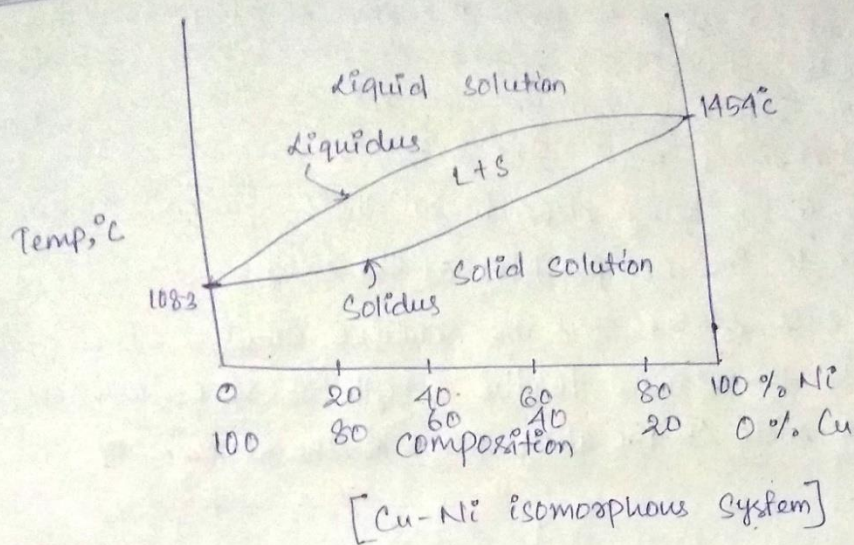 Liquid solution
1454°C
Liquidus
L+S
Temp,°C
Solid solution
1083
Solidus
0 20 40. 60 80 100 % Ni
100 80 60 40 20 0 % Cu
composition
[Cu-Ni isomorphous system]